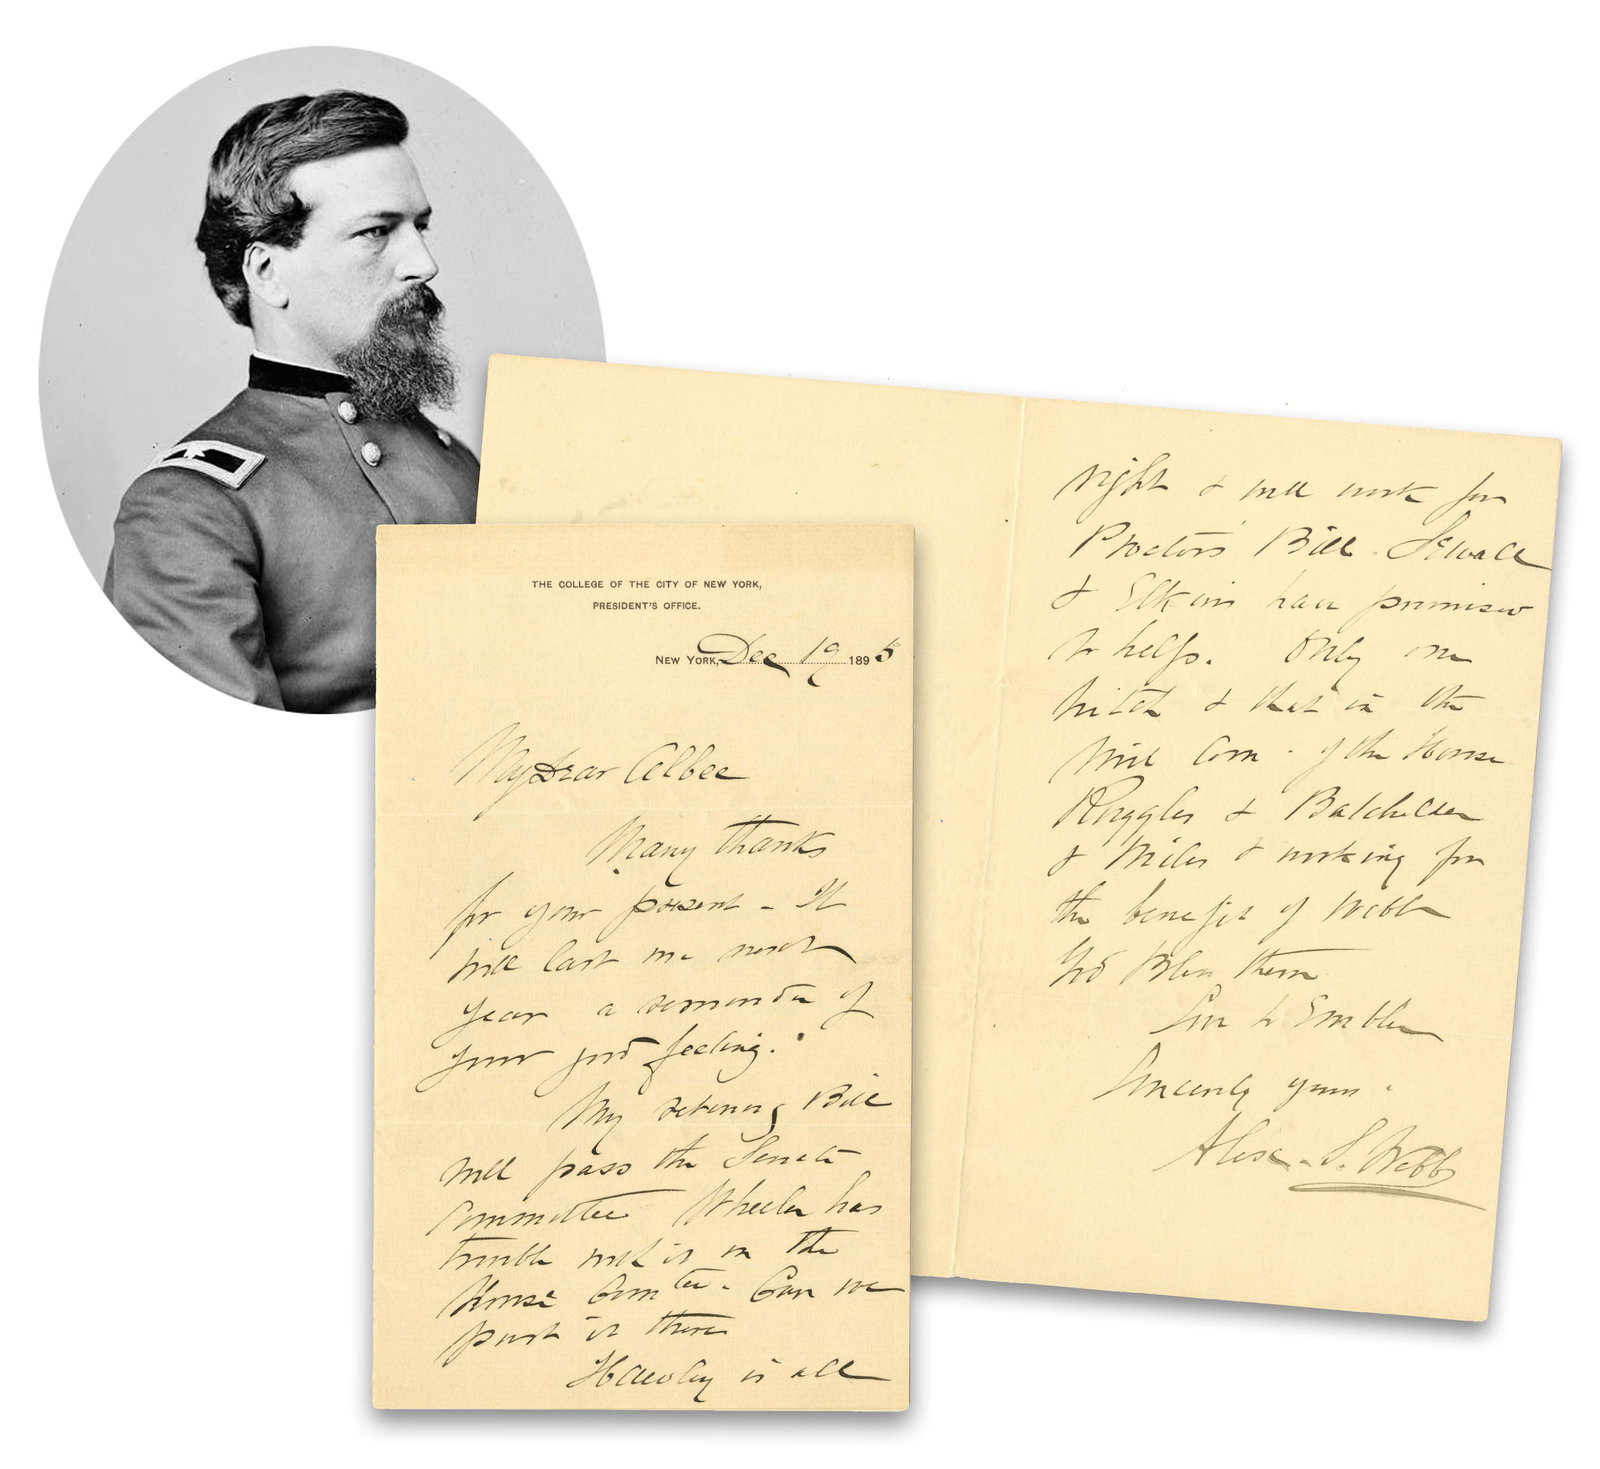 THE COLLEGE OF THE CITY OF NEW YORK,
PRESIDENT'S OFFICE.
NEW YORK, Dec 19 1895
My Dear Albee
Many thanks
for your present - It
will last me next
year a reminder of
your good feeling.
My retiring Bill
will pass the Senate
Committee Wheeler has
trouble with it in the
House Com tee. Can we
push it there
Hawley is all
right & will work for
Proctors Bill. Sewall
& Elkins have promised
to help. Only one
hitch & that in the
Mil Com. of the House
Ruggles & Batchelder
& Miles & working for
the benefit of Webb
God Bless them
Sincerely yours.
Alex. S. Webb